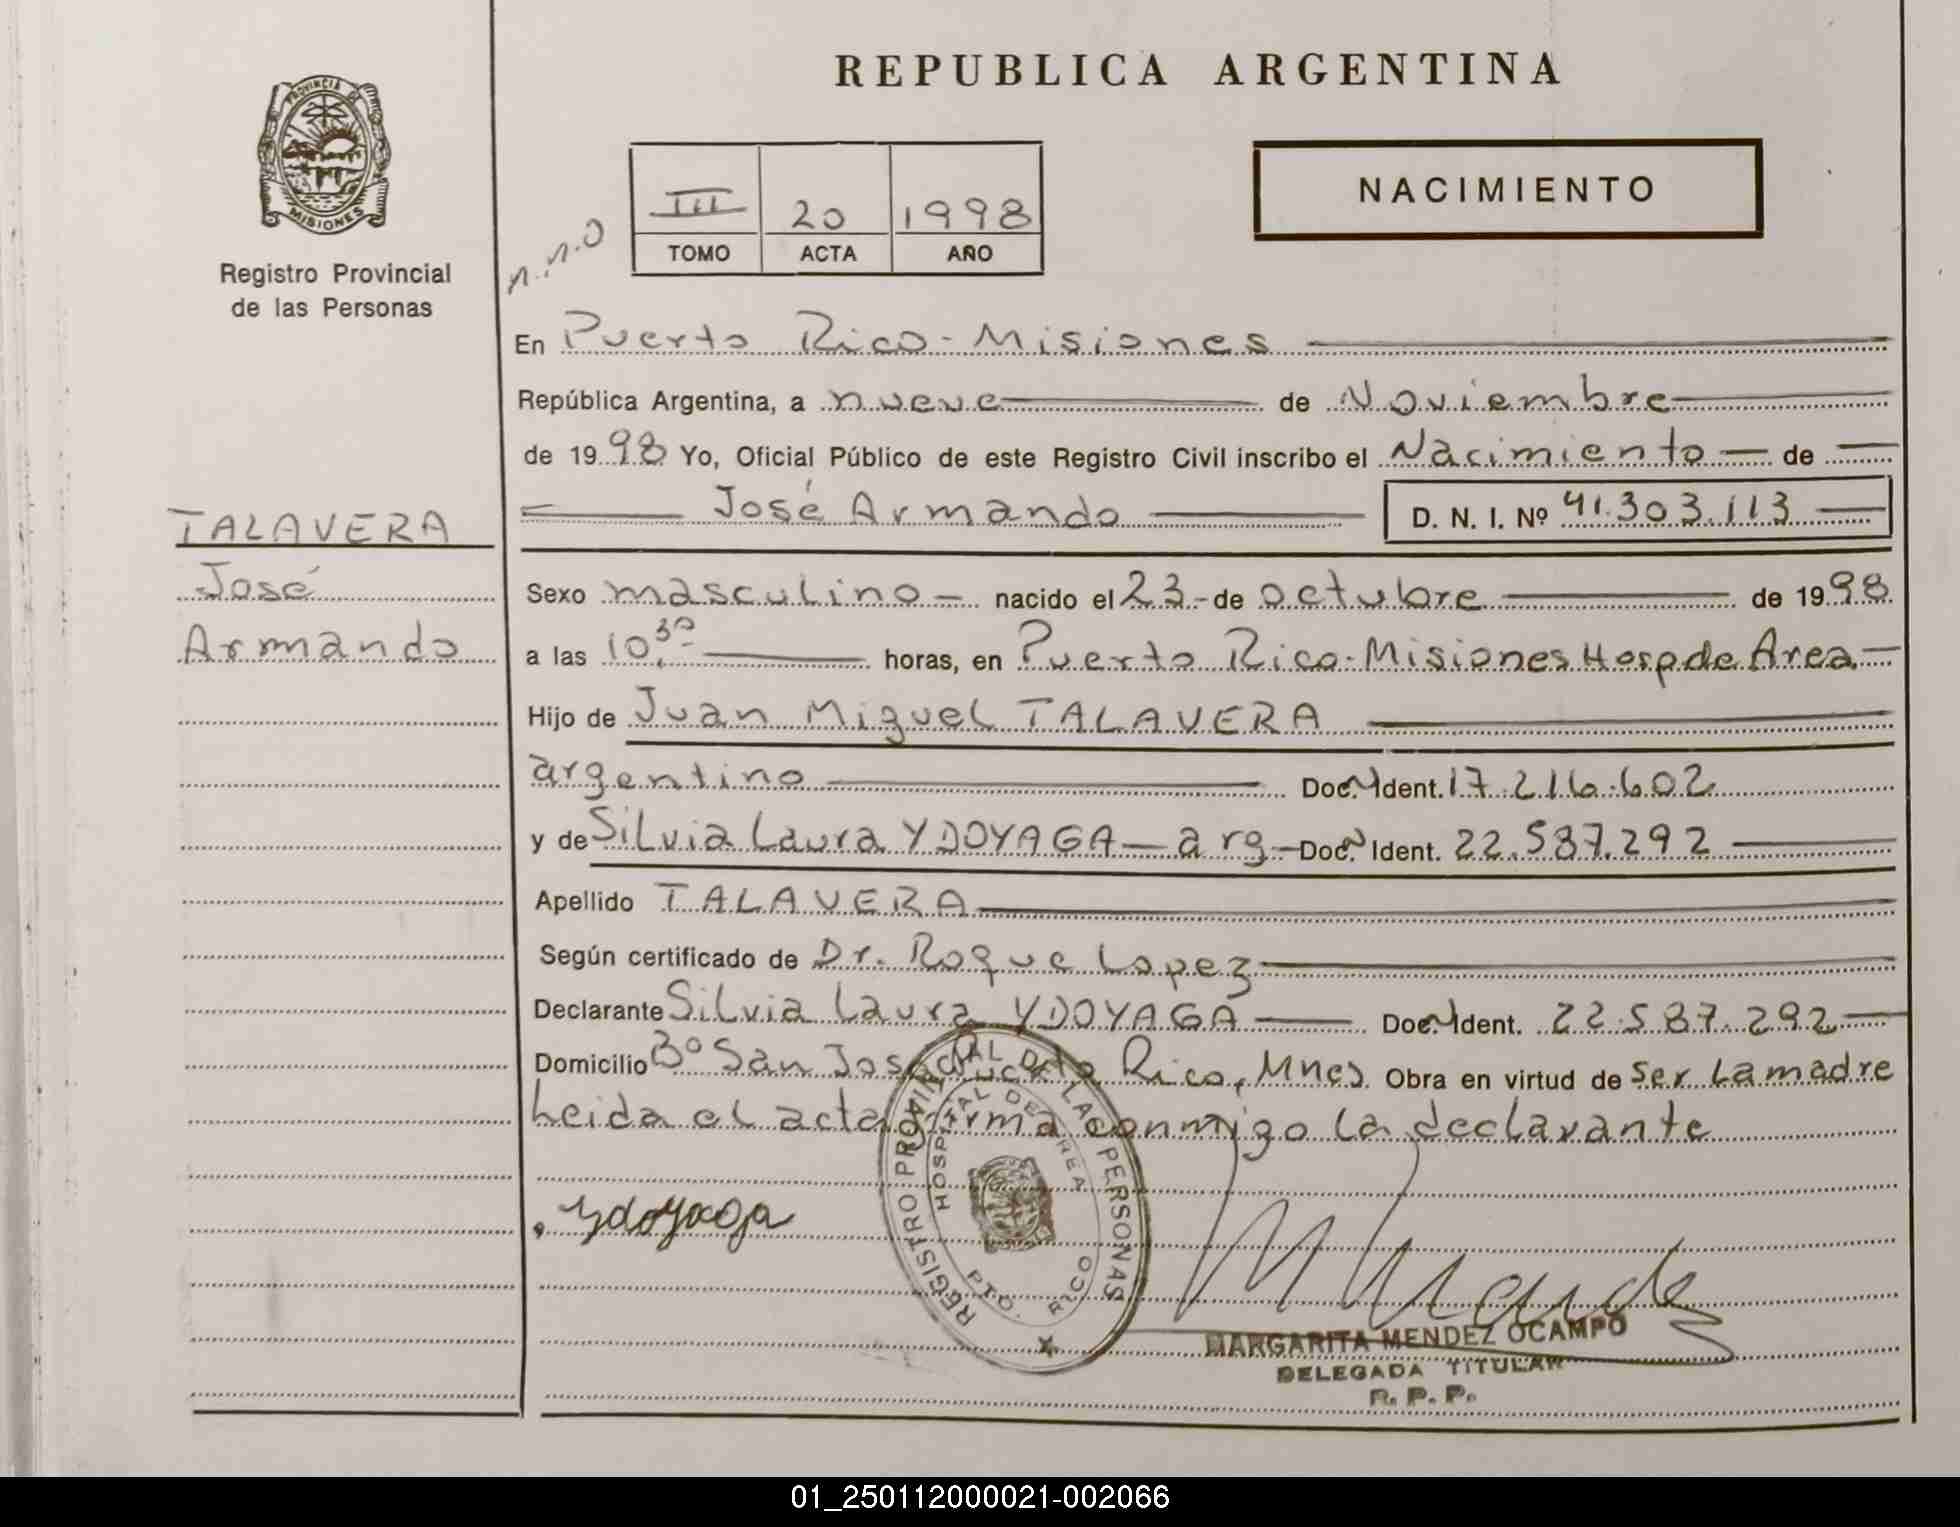 REPUBLICA ARGENTINA
PROVINCIA DE
MISIONES
Registro Provincial
de las Personas
III 20 1998
TOMO ACTA AÑO
NACIMIENTO
n.n.o
En Puerto Rico - Misiones
República Argentina, a nueve de Noviembre
de 1998 Yo, Oficial Público de este Registro Civil inscribo el Nacimiento de
José Armando D. N. I. Nº 41.303.113
TALAVERA
José
Armando
Sexo masculino - nacido el 23 - de octubre de 1998
a las 10,30 horas, en Puerto Rico - Misiones Hosp de Area
Hijo de Juan Miguel TALAVERA
argentino Doc. N Ident. 17.216.602
y de Silvia Laura YDOYAGA - arg - Doc. N Ident. 22.587.292
Apellido TALAVERA
Según certificado de Dr. Roque Lopez
Declarante Silvia Laura YDOYAGA Doc. N Ident. 22.587.292
Domicilio Bº San José Rico, Mnes Obra en virtud de ser la madre
Leida el acta firma conmigo la declarante
Ydoyaga
REGISTRO PROVINCIAL DE LAS PERSONAS
HOSPITAL DE AREA
PTO. RICO
MARGARITA MENDEZ OCAMPO
DELEGADA TITULAR
R. P. P.
01_250112000021-002066